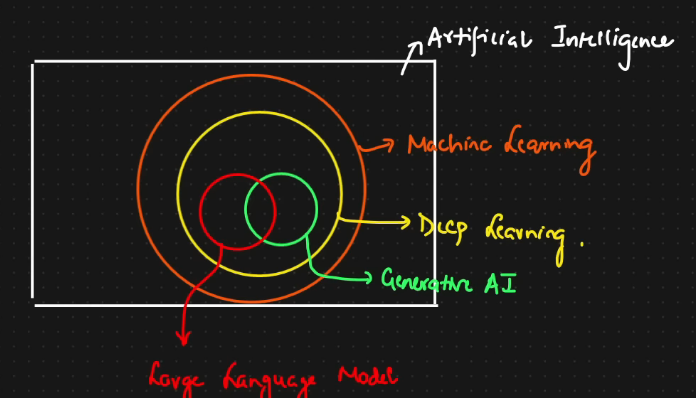 Artificial Intelligence
Machine Learning
Deep Learning.
Generative AI
Large Language Model